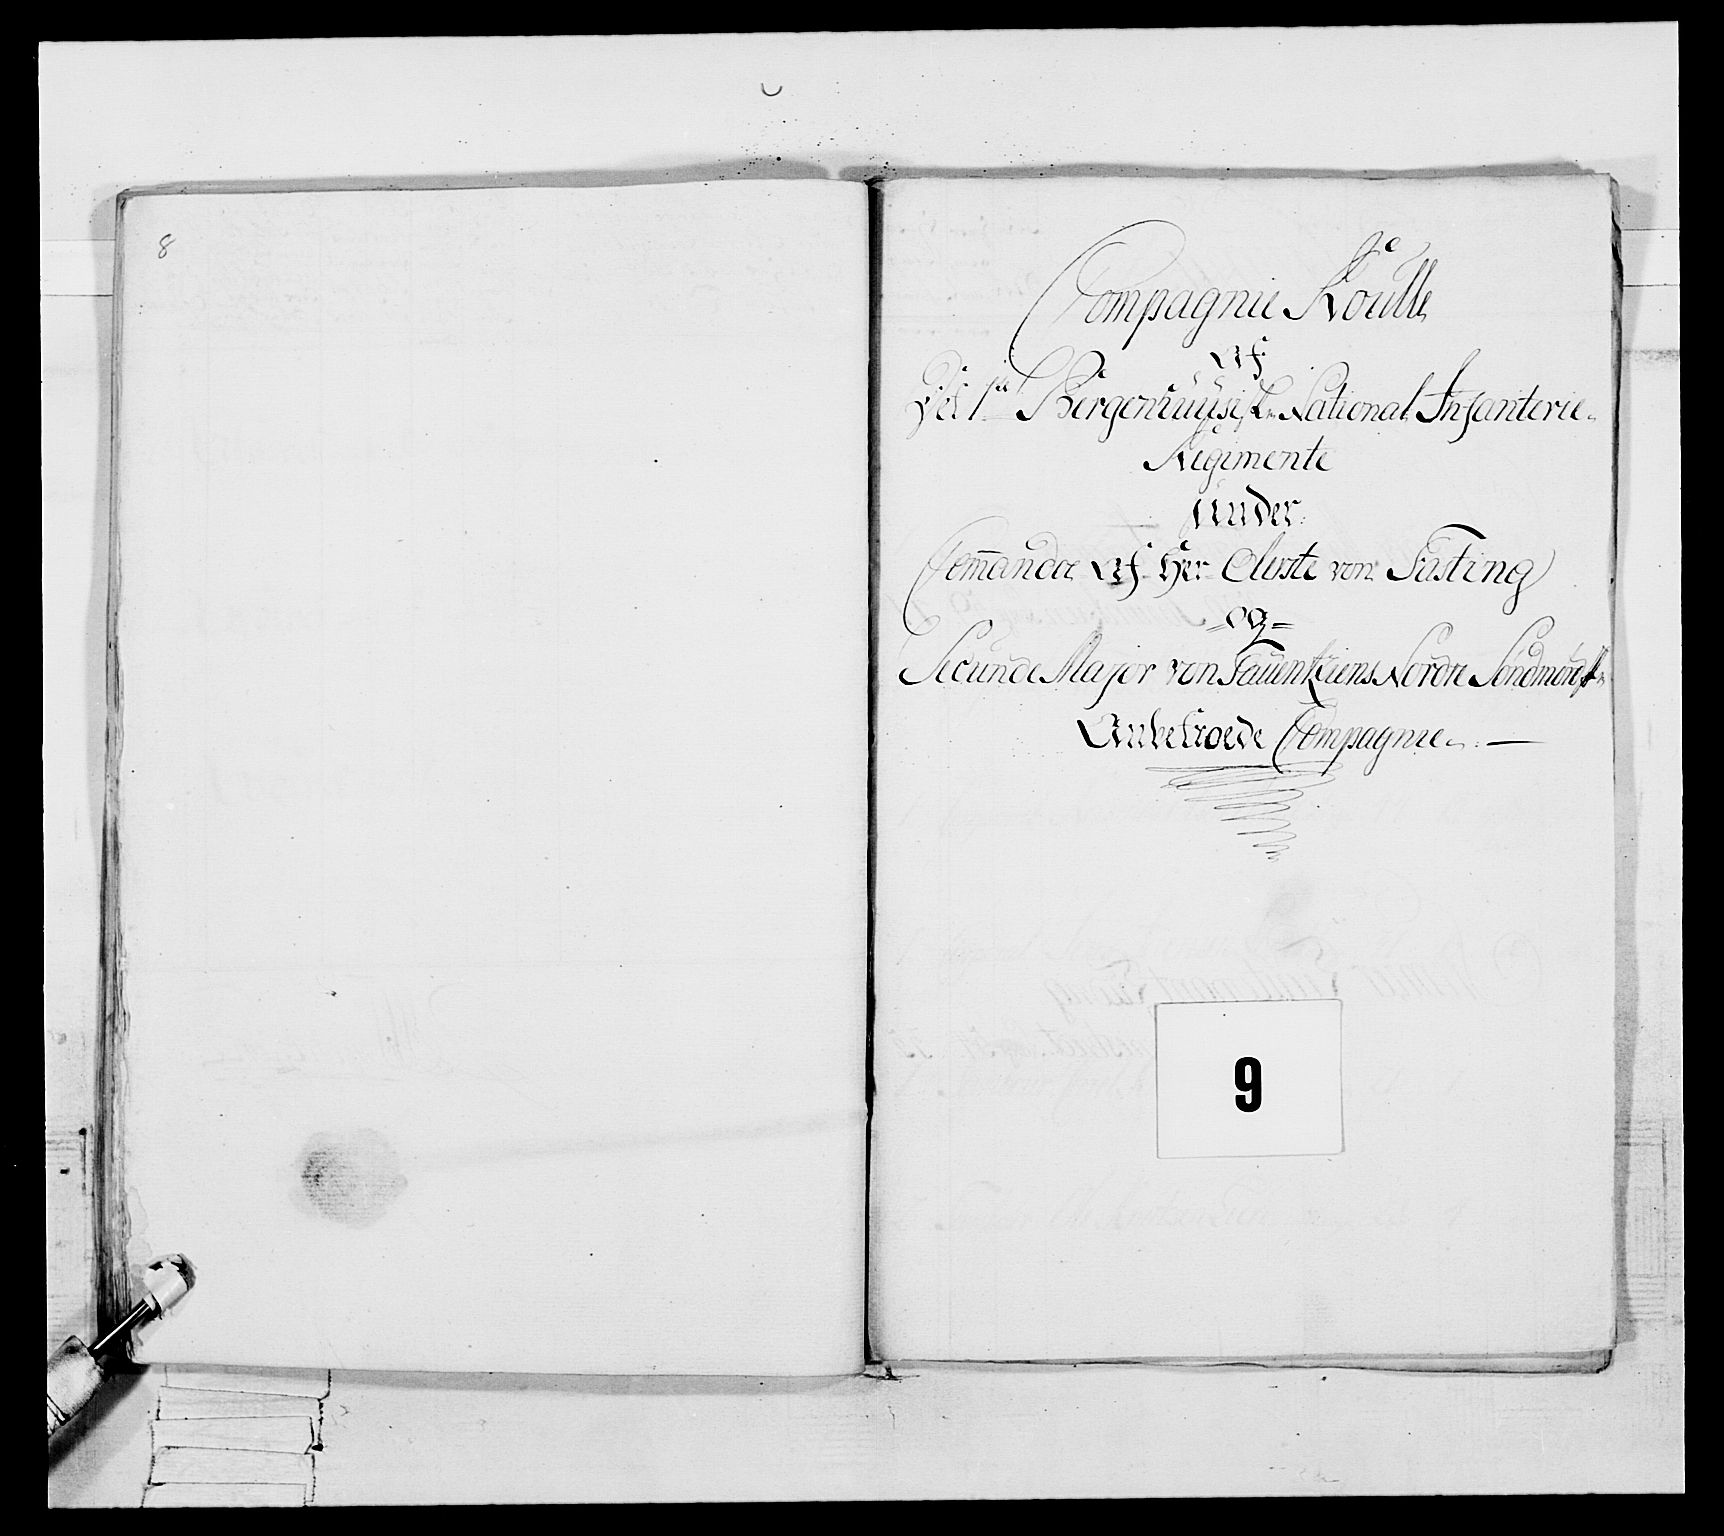 8
Compagnie Roulle
Af
Det 1te Bergenhuusiske National Infanterie
Regimente
Under
Commando Af Her Oberste von Fasting
og
Secunde Major von Tauenkiens Nordre Søndmørske
Anbetroede Compagnie
9